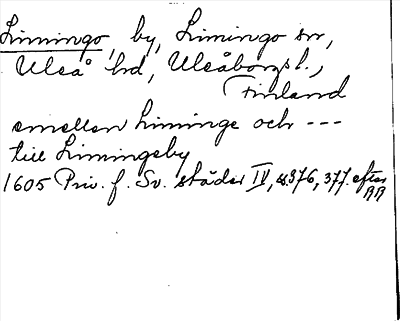 Limingo, by, Limingo sn,
Uleå hd, Uleåborgsl.,
Finland
emellan Liminge och ---
till Limingeby
1605 Priv. f. Sv. städer IV, s. 376, 377. efter
RA